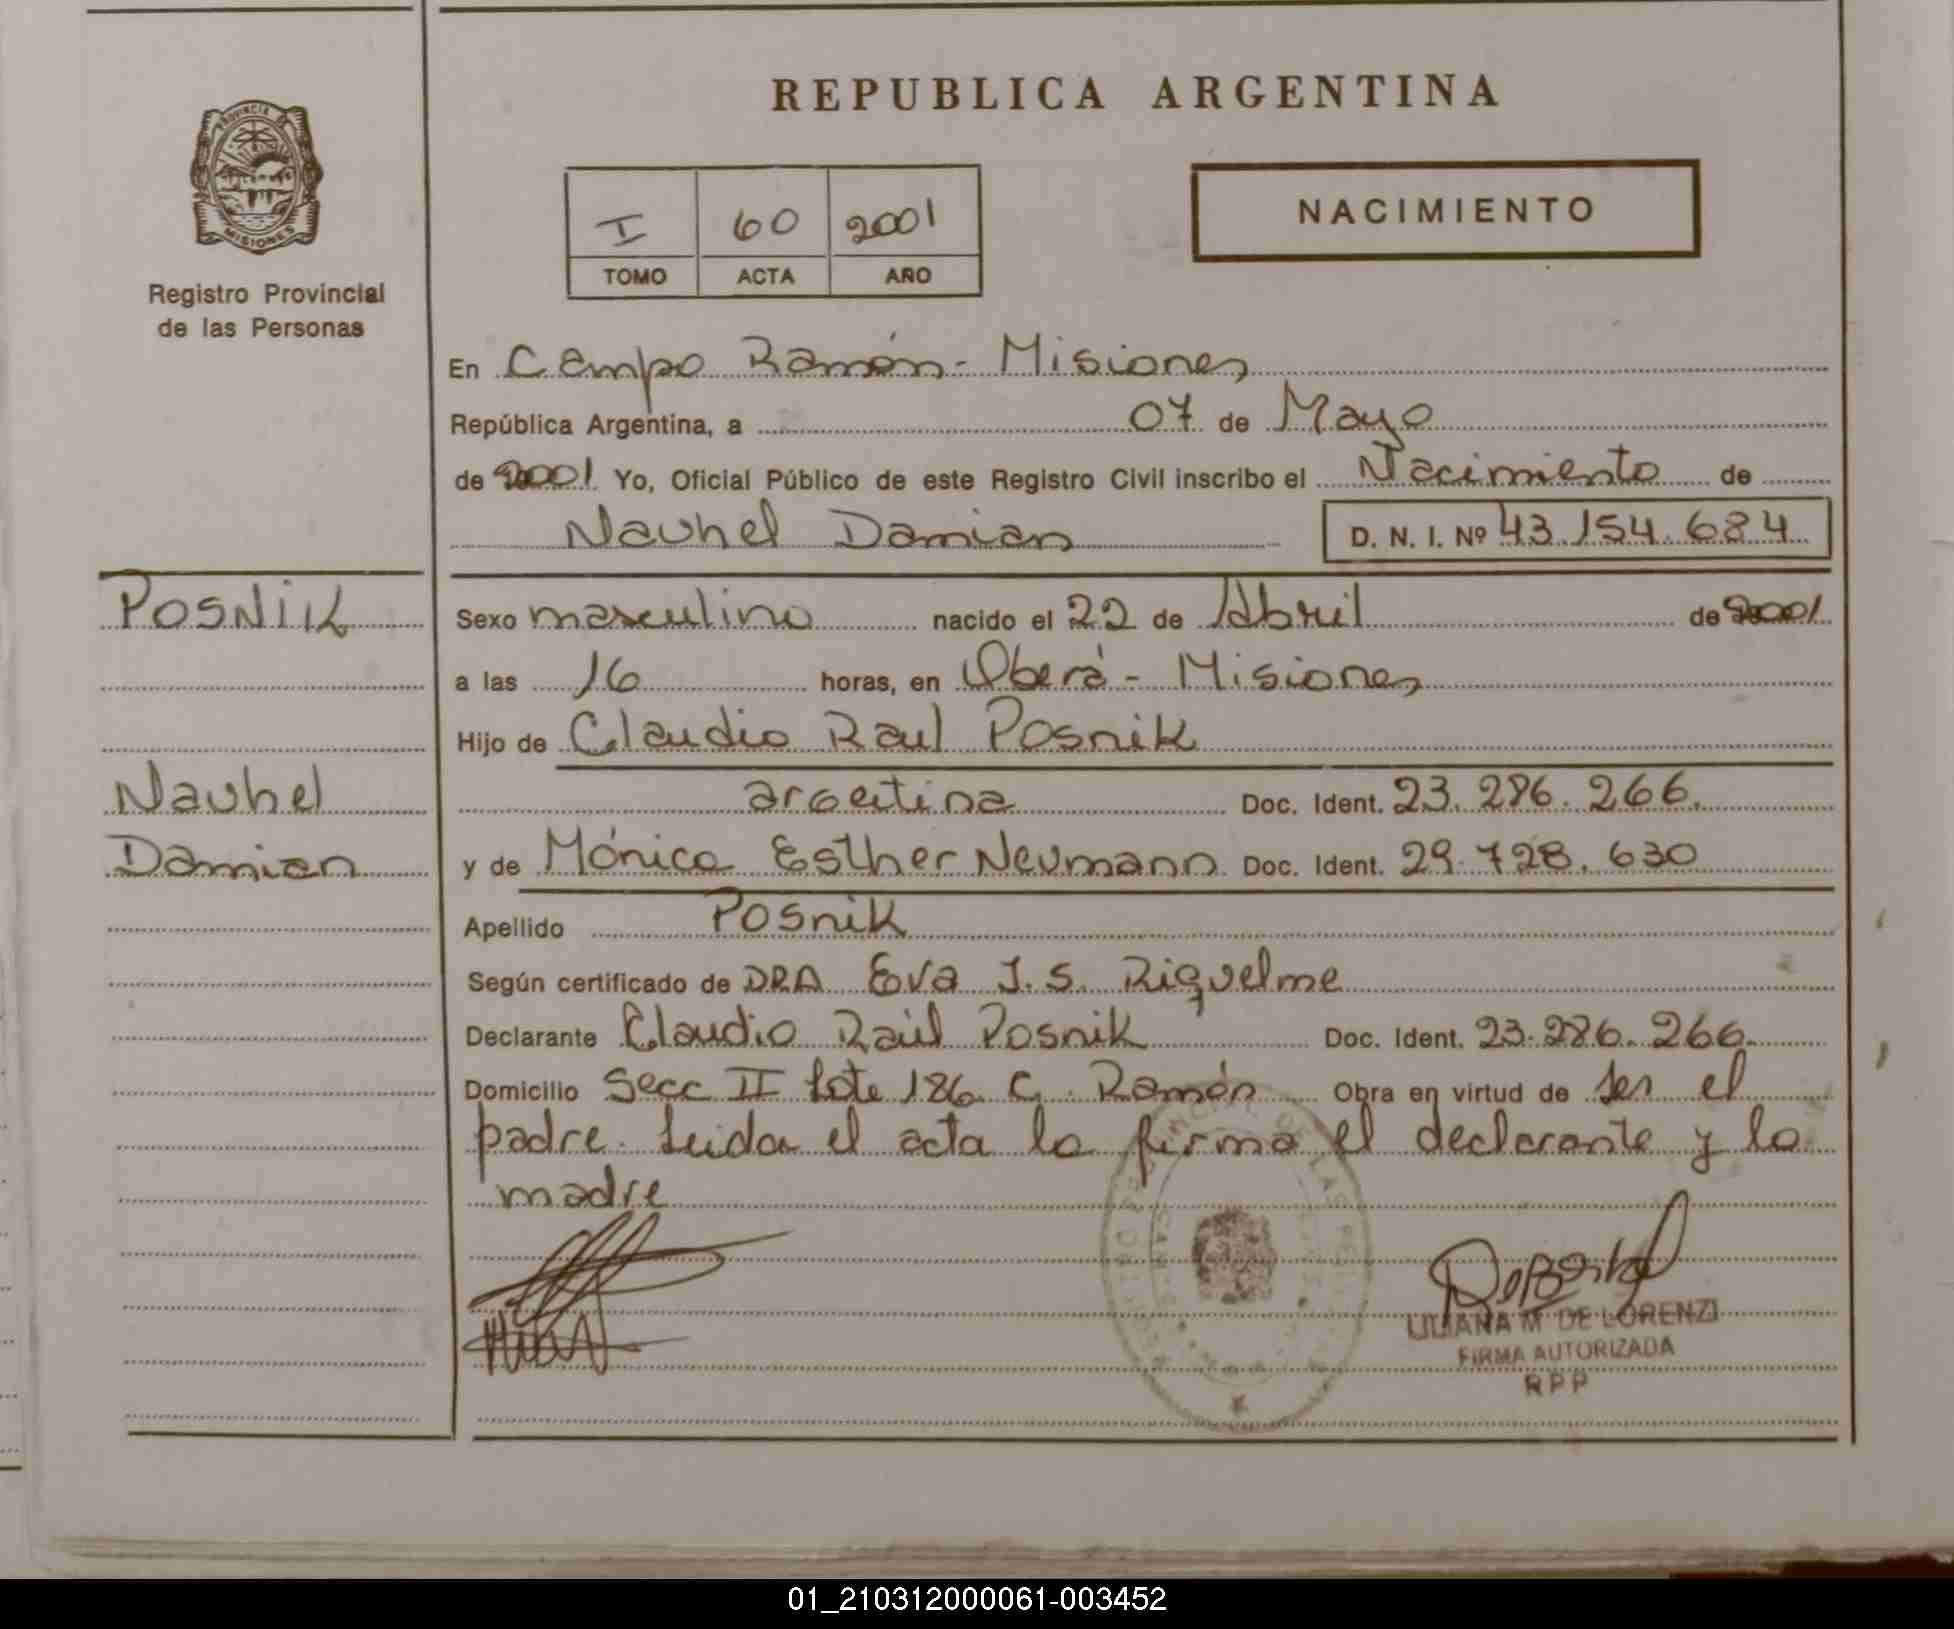 REPUBLICA ARGENTINA
PROVINCIA DE
MISIONES
Registro Provincial
de las Personas
I 60 2001
TOMO ACTA AÑO
NACIMIENTO
En Campo Ramón - Misiones
República Argentina, a 07 de Mayo
de 2001 Yo, Oficial Público de este Registro Civil inscribo el Nacimiento de
Nauhel Damian D. N. I. Nº 43.154.684
POSNIK
Nauhel
Damian
Sexo masculino nacido el 22 de Abril de 2001
a las 16 horas, en Oberá - Misiones
Hijo de Claudio Raul Posnik
argentina Doc. Ident. 23.286.266.
y de Mónica Esther Neumann Doc. Ident. 29.728.630
Apellido Posnik
Según certificado de DRA Eva J.S. Riquelme
Declarante Claudio Raúl Posnik Doc. Ident. 23.286.266.
Domicilio Secc II Lote 186 C. Ramón Obra en virtud de ser el
padre. Leida el acta la firma el declarante y la
madre
LILIANA M DE LORENZI
FIRMA AUTORIZADA
RPP
01_210312000061-003452